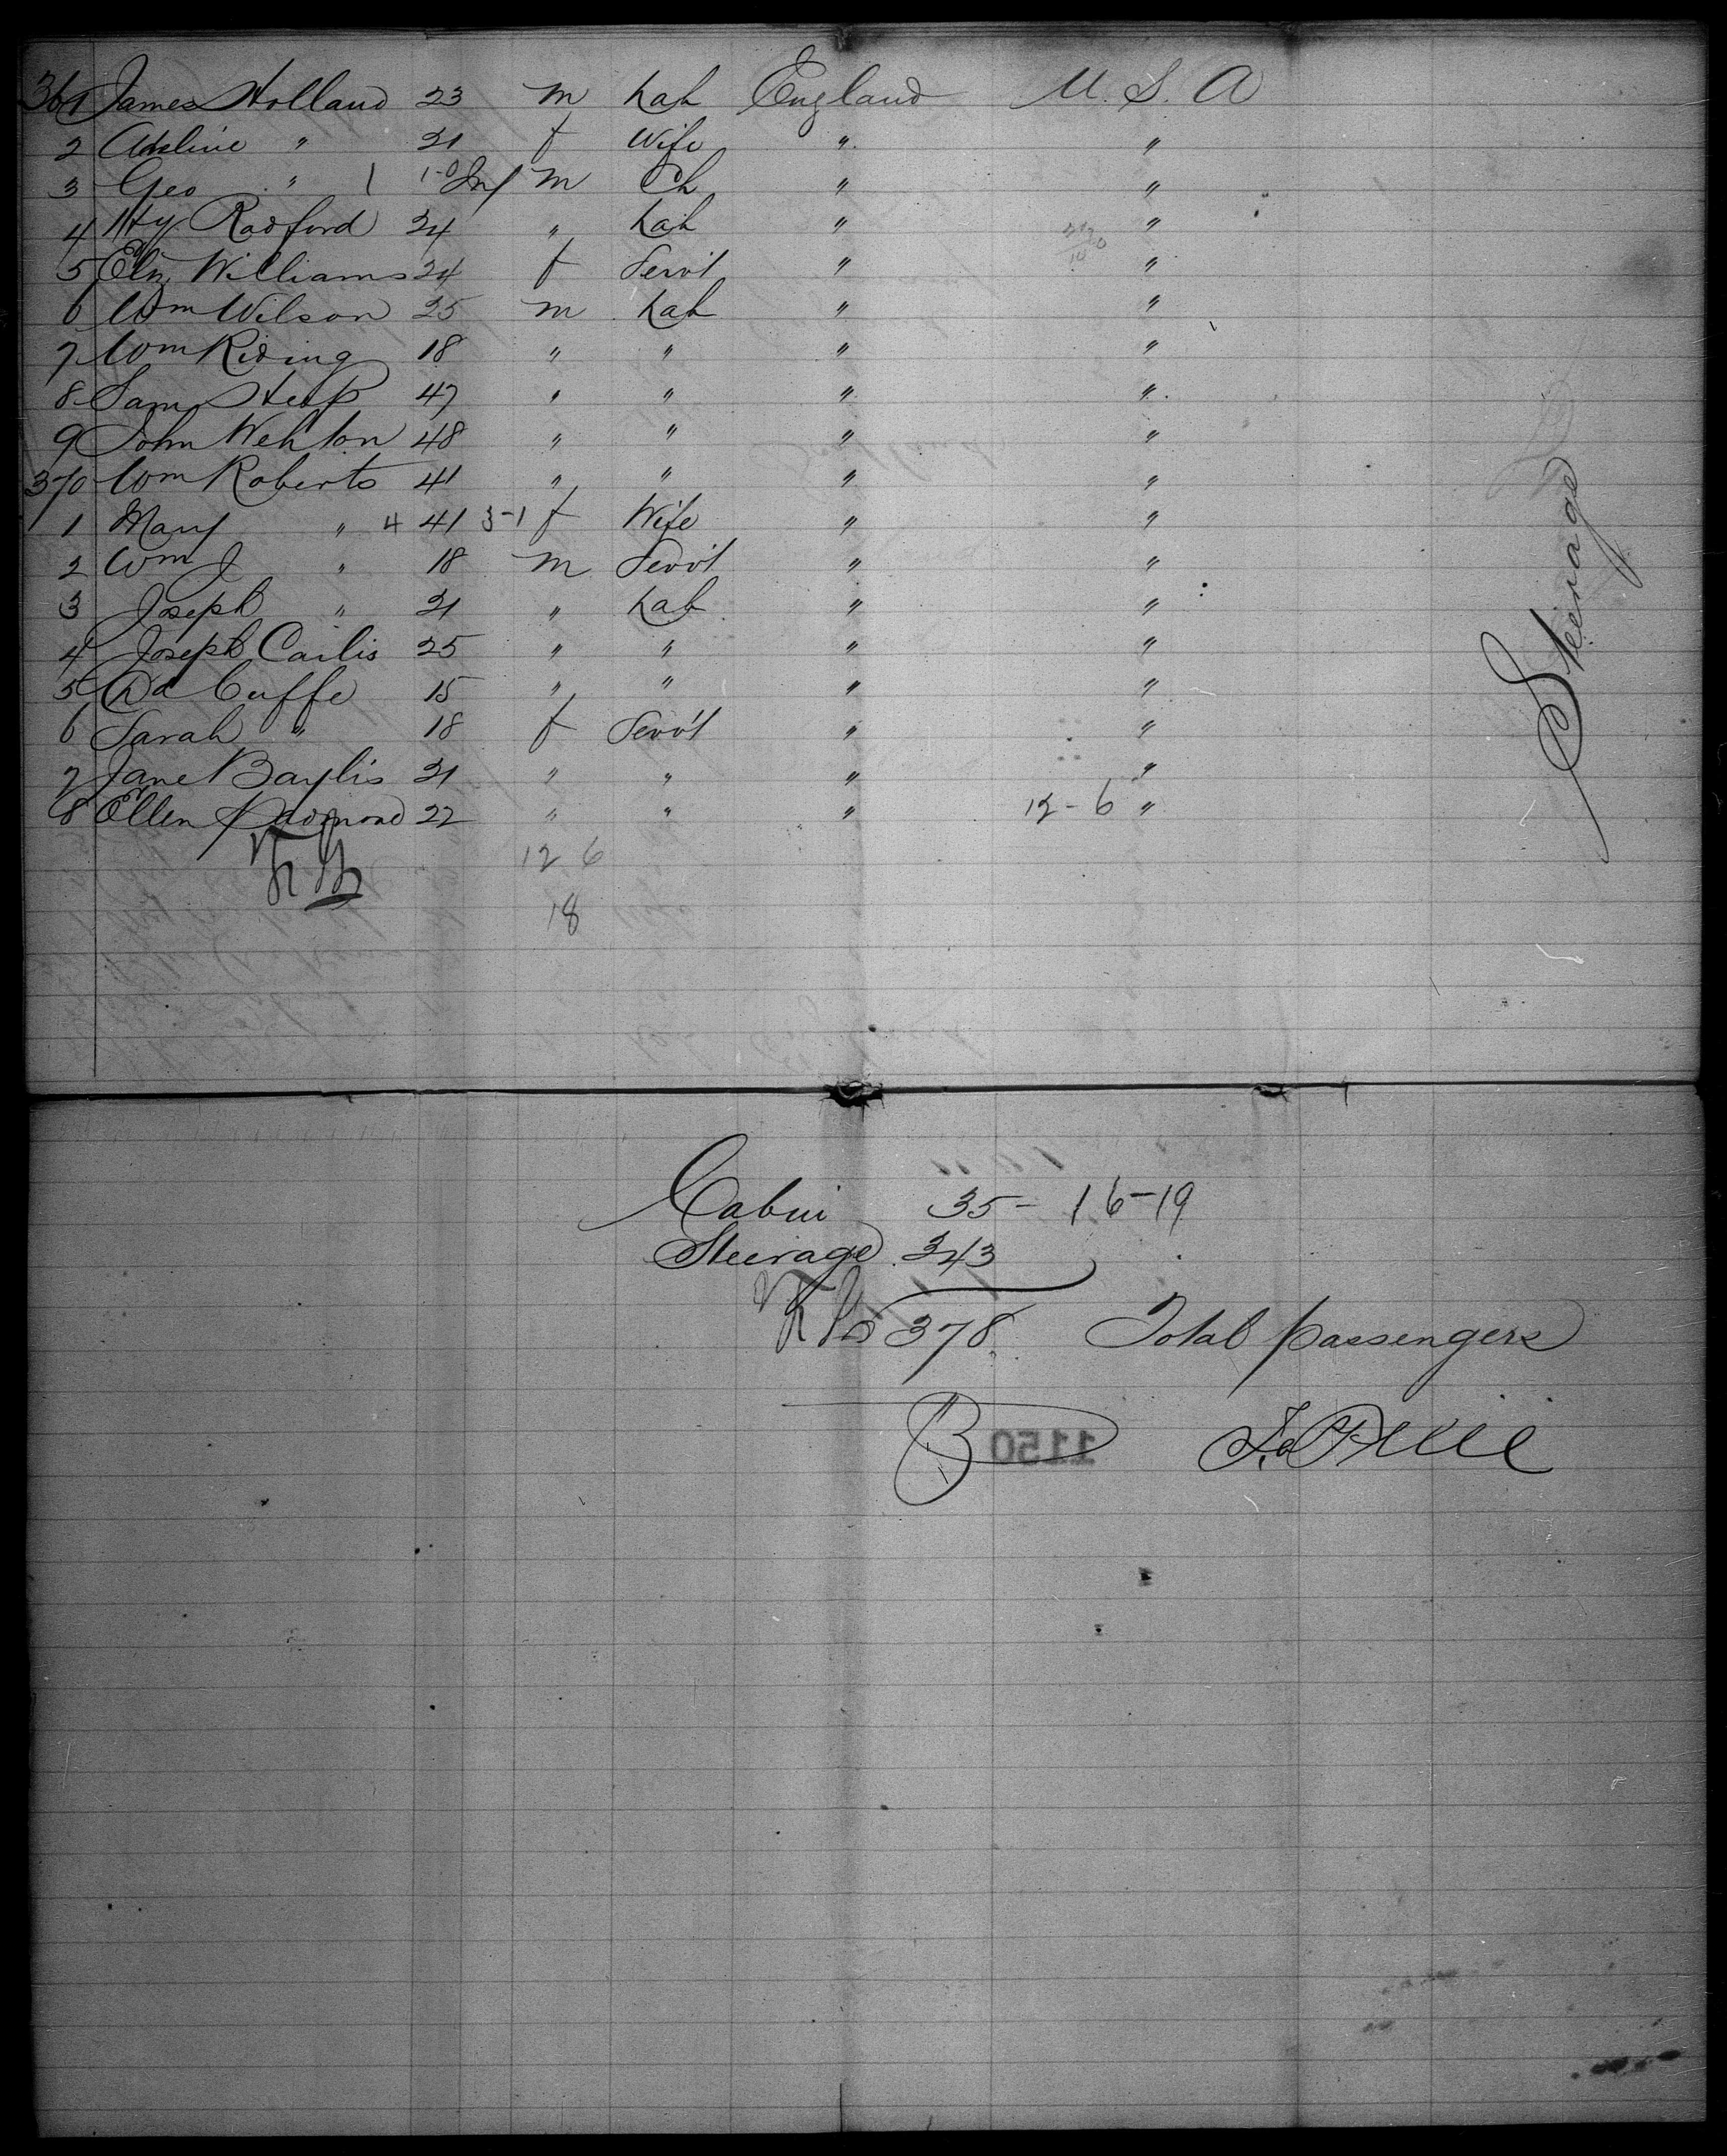 361 James Holland 23 m Lab England U. S. A
2 Adeline " 21 f Wife " "
3 Geo " 1 Inf m Ch " "
4 Hy Radford 24 " Lab " "
5 Eliz Williams 24 f Servt " "
6 Wm Wilson 25 m Lab " "
7 Wm Riding 18 " " " "
8 Sam Heap 47 " " " "
9 John Wehton 48 " " " "
370 Wm Roberts 41 " " " "
1 Mary " 4 41 3-1 f Wife " "
2 Wm J " 18 m Servt " "
3 Joseph " 21 " Lab " "
4 Joseph Carlis 25 " " " "
5 Cuffe 15 " " " "
6 Sarah " 18 f Servt " "
7 Jane Baylis 21 " " " "
8 Ellen 22 " " " 12-6 "
12 6
18
Steerage
Cabin 35 - 16-19
Steerage 343
378 Total passengers
1150